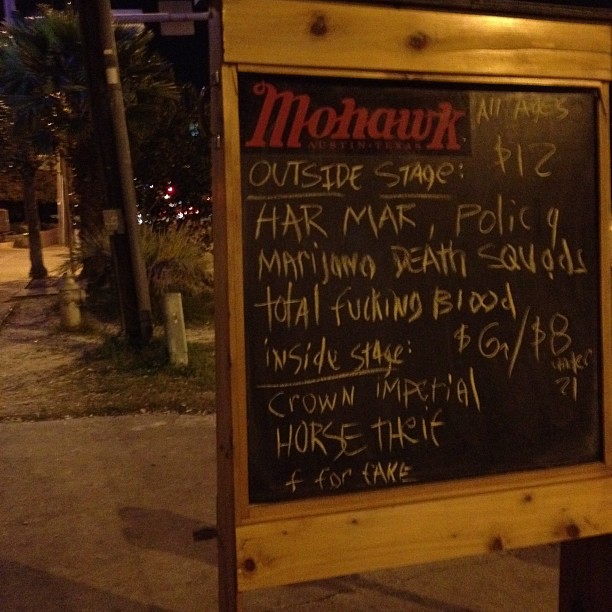 Mohawk All Ages
AUSTIN • TEXAS
OUTSIDE STAGE: $12
HAR MAR, POLICA
MARIJANA DEATH SQUADS
TOTAL FUCKING BLOOD
INSIDE STAGE: $6/$8
under 21
CROWN IMPERIAL
HORSE THEIF
F FOR FAKE